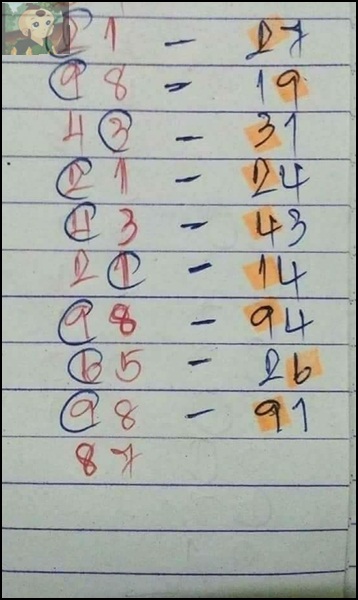 21 - 27
98 - 19
43 - 31
21 - 24
43 - 43
21 - 14
98 - 94
65 - 26
98 - 91
87